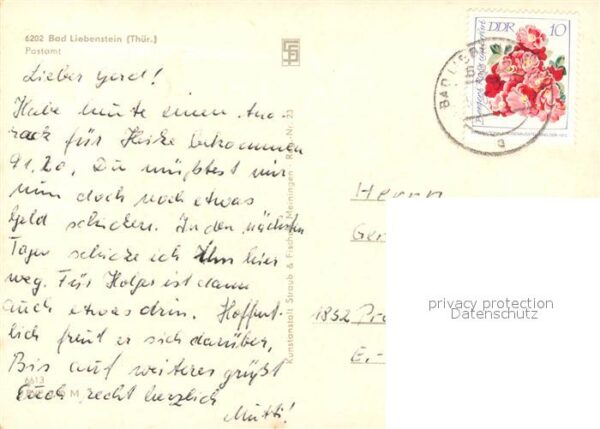 6202 Bad Liebenstein (Thür.)
Postamt
Lieber Gerd!
Habe heute einen Ano-
rack für Heike bekommen
91.20, Du müßtest mir
nun doch noch etwas
Geld schicken. In den nächsten
Tagen schicke ich ihn hier
weg. Für Holger ist dann
auch etwas drin. Hoffent-
lich freut er sich darüber,
Bis auf weiteres grüßt
Euch recht herzlich
Mutti!
6613
M
Kunstanstalt Straub & Fischer Meiningen
23
DDR 10
BAD LIEB
a
Herrn
Ger
1832 Pre
E.-
privacy protection
Datenschutz